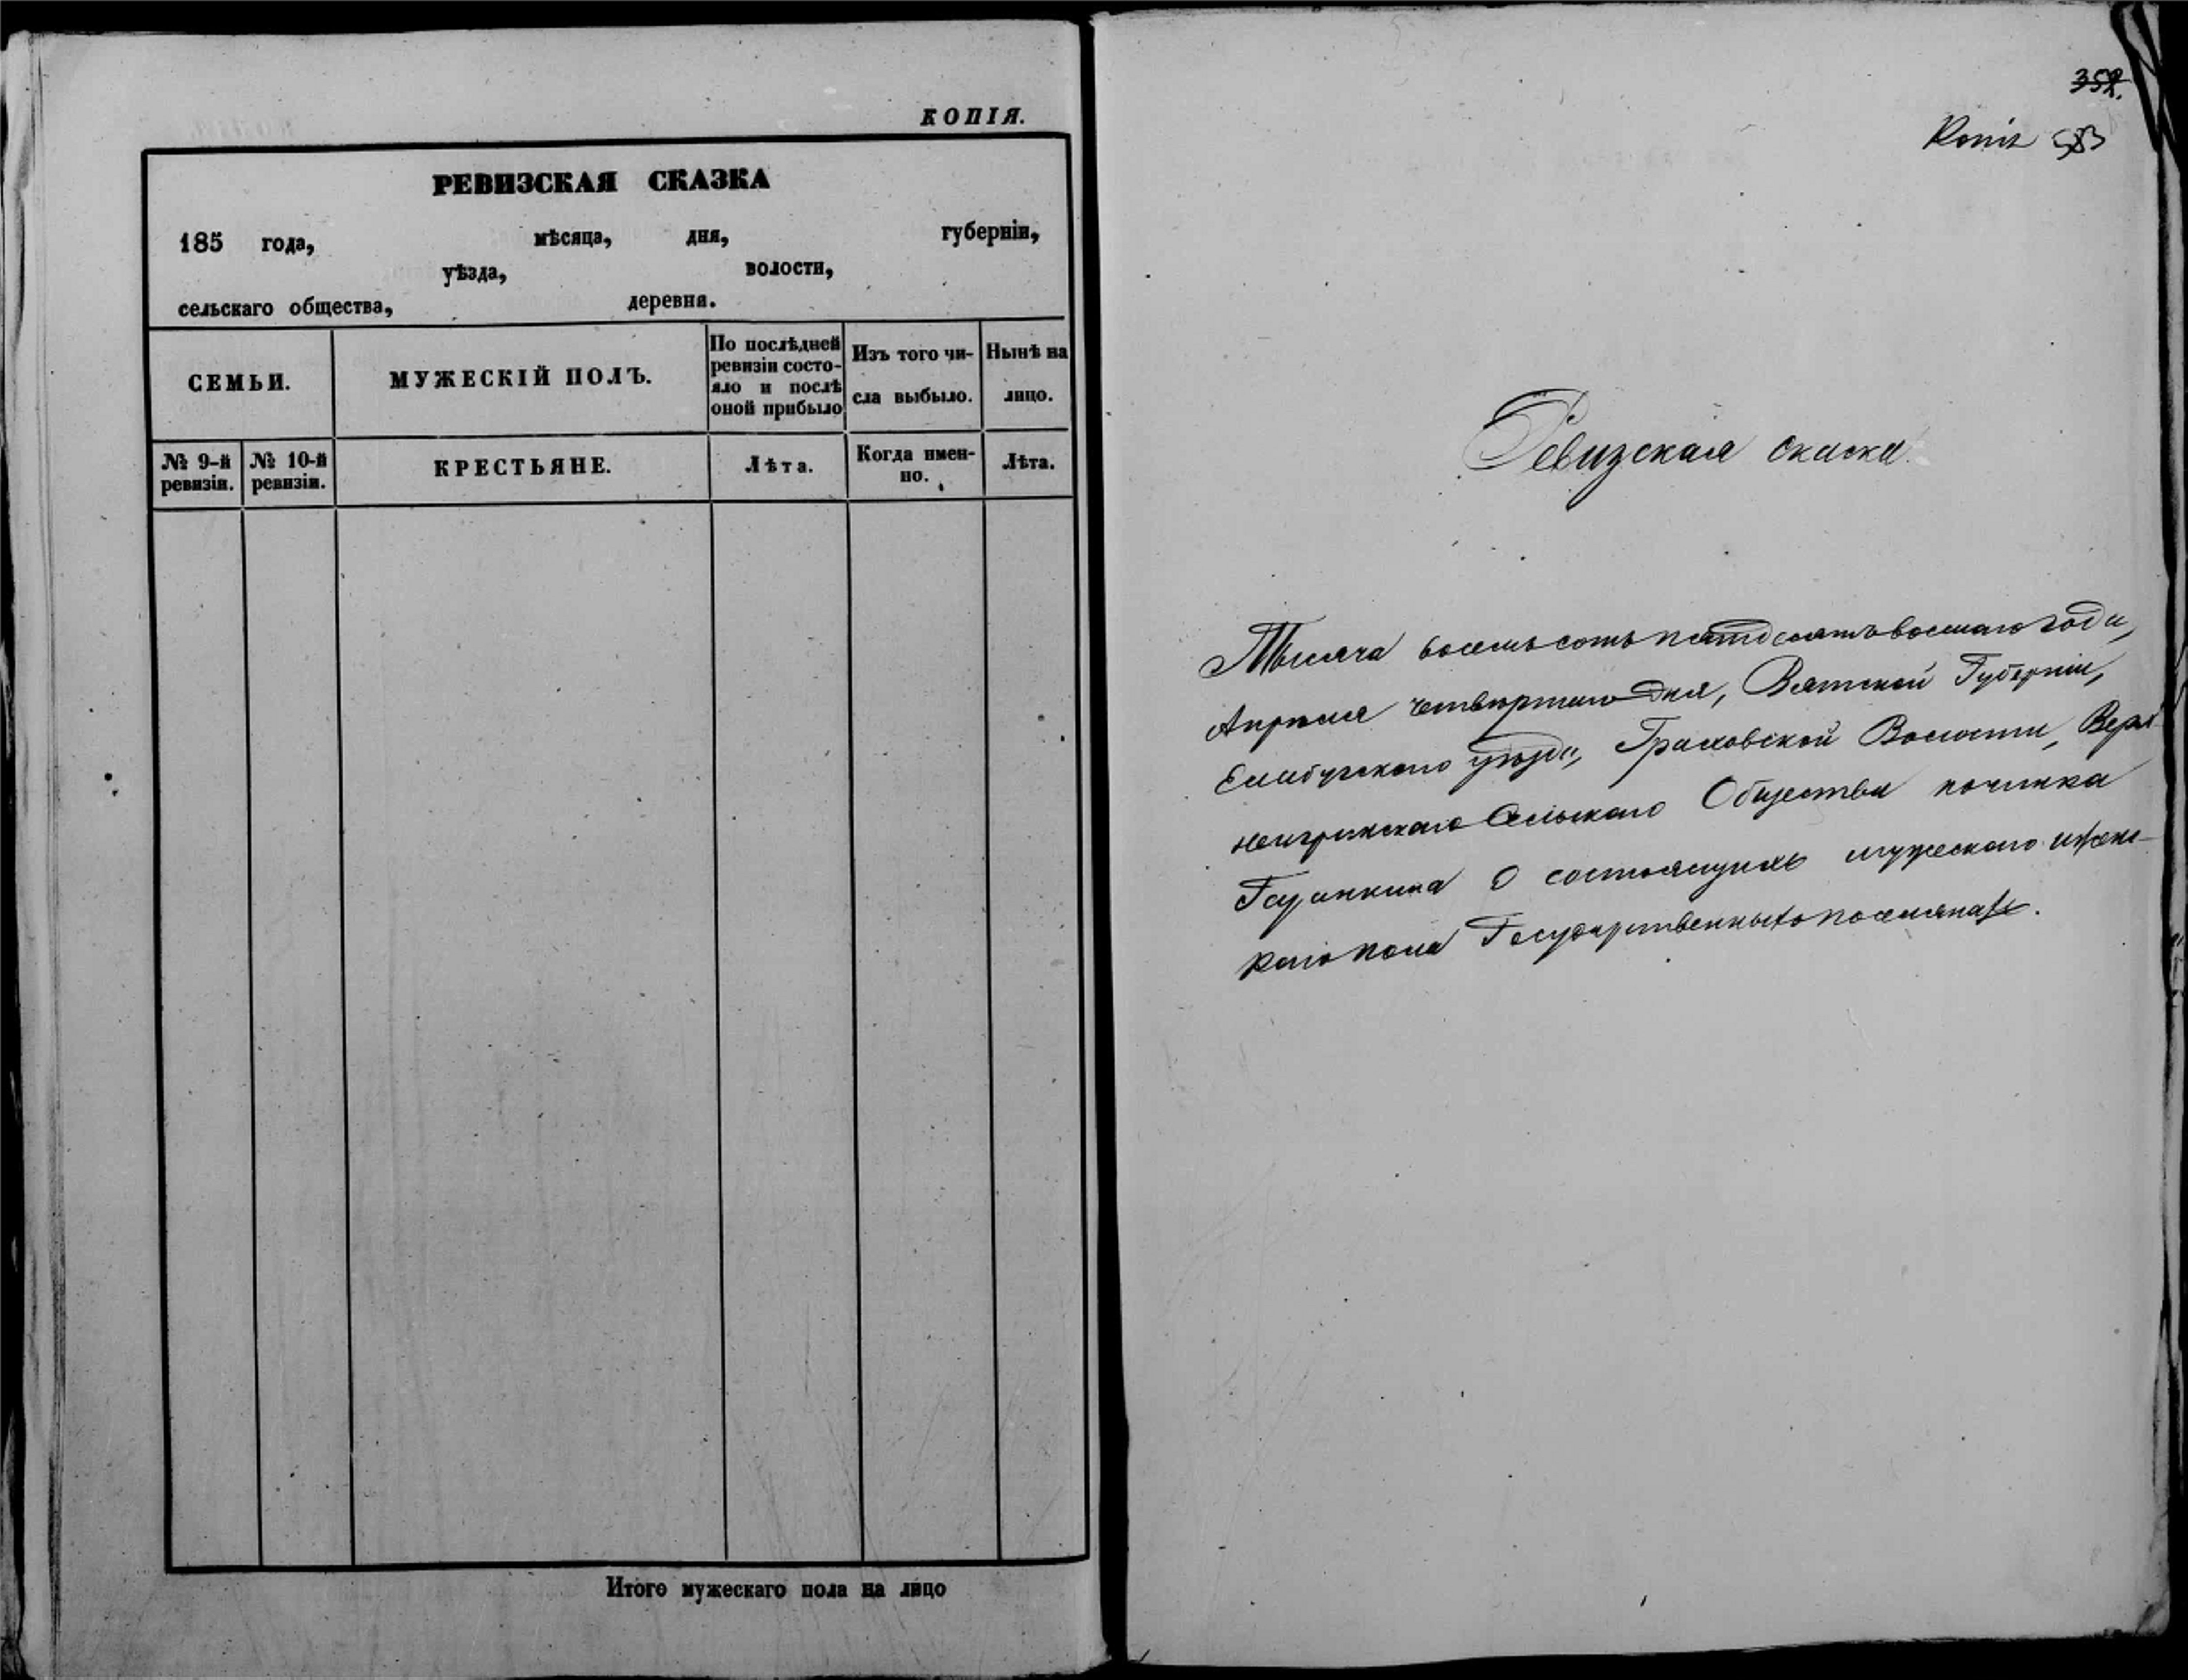 КОПІЯ.
РЕВИЗСКАЯ СКАЗКА
185 года, мѣсяца, дня, губерніи,
уѣзда, волости,
сельскаго общества, деревня.
СЕМЬИ.
МУЖЕСКІЙ ПОЛЪ.
По послѣдней
ревизіи состо-
яло и послѣ
оной прибыло
Изъ того чи-
сла выбыло.
Нынѣ на
лицо.
№ 9-й
ревизіи.
№ 10-й
ревизіи.
КРЕСТЬЯНЕ.
Лѣта.
Когда имен-
но.
Лѣта.
Итого мужескаго пола на лицо
352.
Копія
Ревизская скаска.
Тысяча восемьсотъ пятдесятъ восмаго года,
Апрѣля четвертаго дня, Вятской Губерніи,
Елабужскаго уѣзда, Граховской Волости, Верх
неигринскаго Сельскаго Общества починка
О состоящихъ мужескаго и женс-
каго пола Государственныхъ поселянахъ.